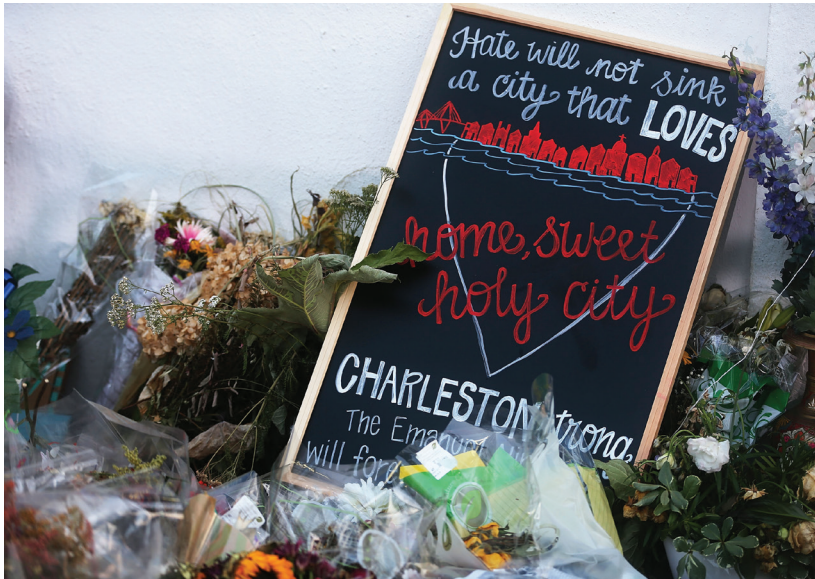 Hate will not sink
a city that LOVES
home, sweet
holy city
CHARLESTON
The
will